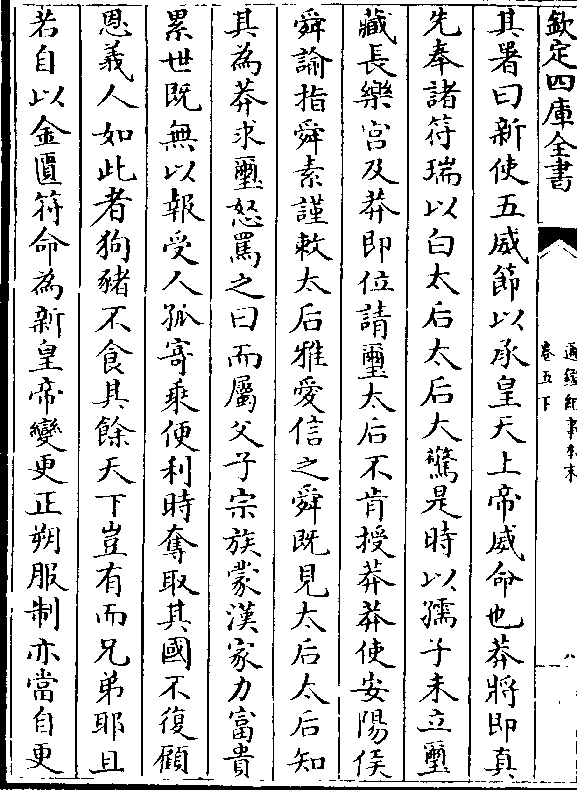 欽定四庫全書
通鑑紀事本末
卷五下
八
其署曰新使五威節以承皇天上帝威命也莽將即真
先奉諸符瑞以白太后太后大驚是時以孺子未立璽
藏長樂宮及莽即位請璽太后不肯授莽莽使安陽侯
舜諭指舜素謹敕太后雅愛信之舜既見太后太后知
其為莽求璽怒罵之曰而屬父子宗族蒙漢家力富貴
累世既無以報受人孤寄乘便利時奪取其國不復顧
恩義人如此者狗豬不食其餘天下豈有而兄弟耶且
若自以金匱符命為新皇帝變更正朔服制亦當自更